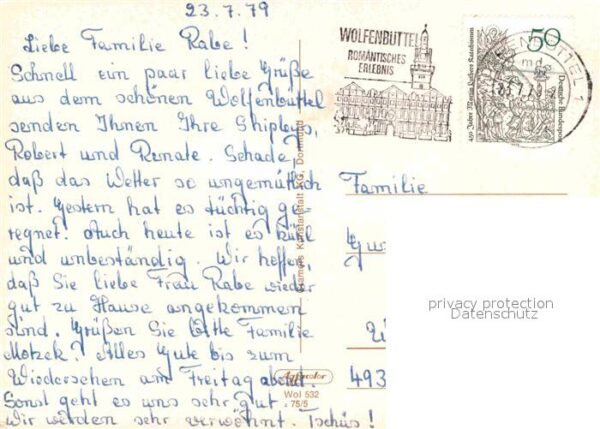 23.7.79
Liebe Familie Rabe!
Schnell ein paar liebe Grüße
aus dem schönen Wolfenbüttel
senden Ihnen Ihre Shipleys,
Robert und Renate. Schade,
daß das Wetter so ungemütlich
ist. Gestern hat es tüchtig ge-
regnet. Auch heute ist es kühl
und unbeständig. Wir hoffen,
daß Sie liebe Frau Rabe wieder
gut zu Hause angekommen
sind. Grüßen Sie bitte Familie
Motzek! Alles Gute bis zum
Wiedersehen am Freitag abend.
Sonst geht es uns sehr gut.
Wir werden sehr verwöhnt. Tschüs!
WOLFENBÜTTEL
ROMANTISCHES
ERLEBNIS
50
Deutsche Bundespost
450 Jahre Martin Luthers Katechismus
Cramers Kunstanstalt KG, Dortmund
Familie
privacy protection
Datenschutz
493
Agfacolor
Wol 532
75/5